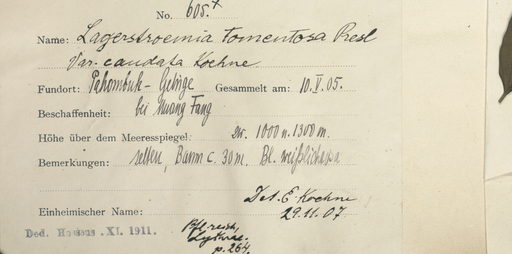 No. 605.
Name: Lagerstroemia tomentosa Presl
Var. caudata Koehne
Fundort: Pahombuk-Gebirge Gesammelt am: 10.V.05.
Beschaffenheit: bei Muang Fang
Höhe über dem Meeresspiegel: zw. 1000 u. 1300 m.
Bemerkungen: selten, Baum c. 30 m. Bl. weißlichrosa
Det. E. Koehne
Einheimischer Name: 29.11.07
Ded. Hosseus .XI. 1911.
Pfl.reich,
Lythrac.
p. 264.